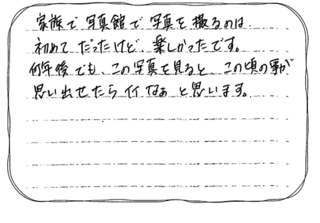 家族で写真館で写真を撮るのは
初めてだったけど、楽しかったです。
何年後でも、この写真を見ると、この頃の事が
思い出せたらイイなぁと思います。